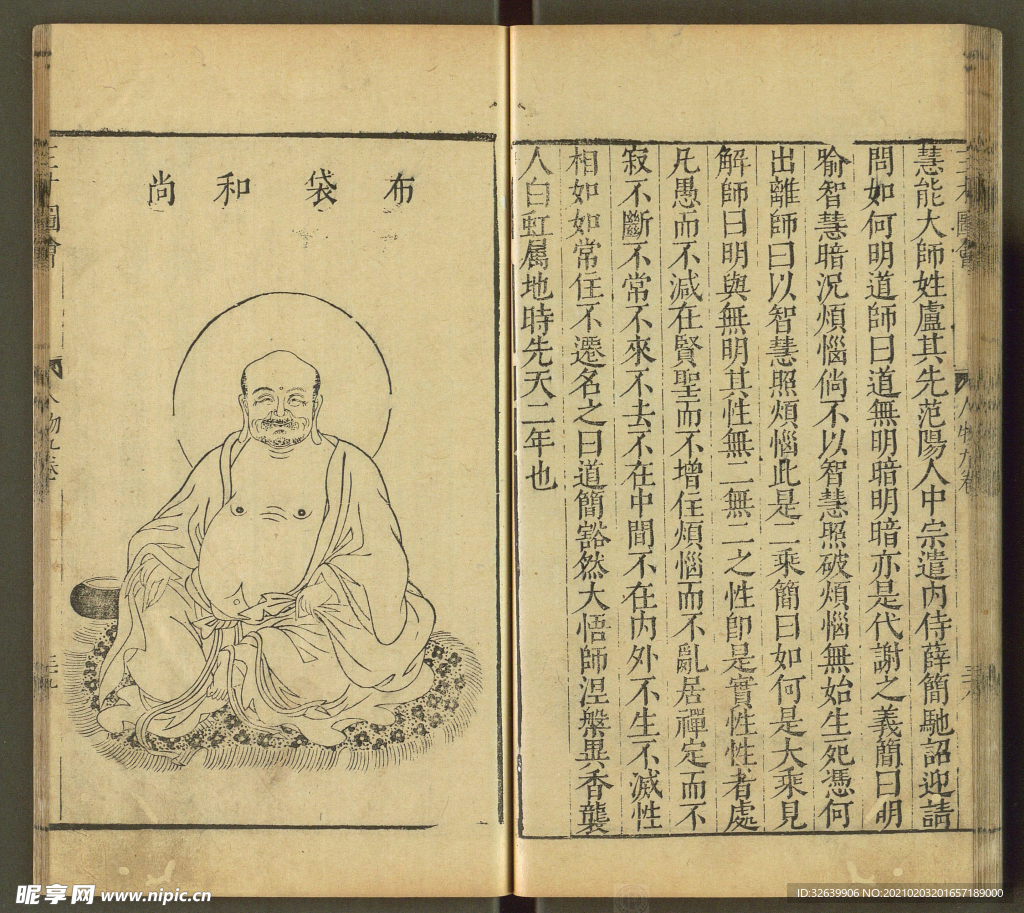 慧能大師姓盧其先范陽人中宗遣内侍薛簡馳詔迎請
問如何明道師曰道無明暗明暗亦是代謝之義簡曰明
喻智慧暗況煩惱倘不以智慧照破煩惱無始生死憑何
出離師曰以智慧照煩惱此是二乘簡曰如何是大乘見
解師曰明與無明其性無二無二之性即是實性性者處
凡愚而不減在賢聖而不增住煩惱而不亂居禪定而不
寂不斷不常不來不去不在中間不在内外不生不滅性
相如如常住不遷名之曰道簡豁然大悟師涅槃異香襲
人白虹属地時先天二年也
布袋和尚
圖會
人物九卷
昵享网 www.nipic.cn
ID:32639906 NO:20210203201657189000